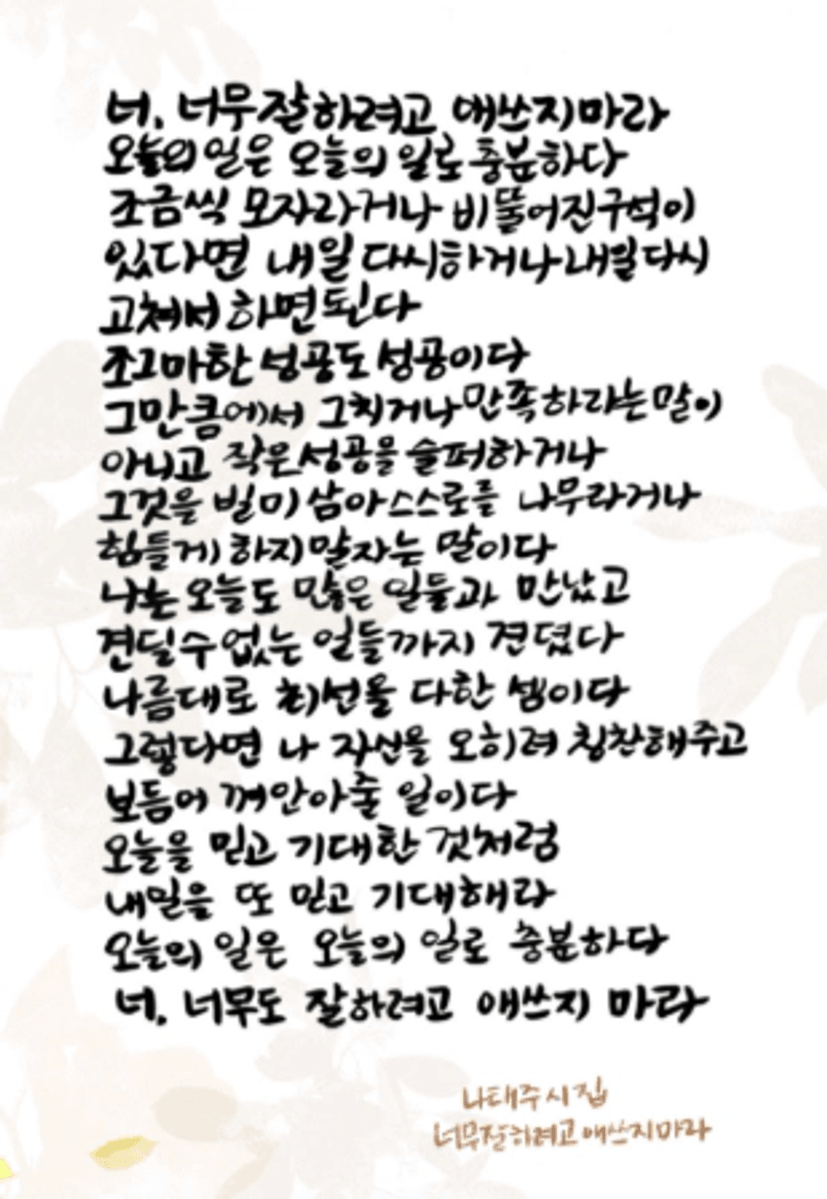 너, 너무 잘하려고 애쓰지 마라
오늘의 일은 오늘의 일로 충분하다
조금씩 모자라거나 비뚤어진 구석이
있다면 내일 다시 하거나 내일 다시
고쳐서 하면 된다
조그마한 성공도 성공이다
그만큼에서 그치거나 만족하라는 말이
아니고 작은 성공을 슬퍼하거나
그것을 빌미 삼아 스스로를 나무라거나
힘들게 하지 말자는 말이다
나는 오늘도 많은 일들과 만났고
견딜 수 없는 일들까지 견뎠다
나름대로 최선을 다한 셈이다
그렇다면 나 자신을 오히려 칭찬해주고
보듬어 껴안아줄 일이다
오늘을 믿고 기대한 것처럼
내일을 또 믿고 기대해라
오늘의 일은 오늘의 일로 충분하다
너, 너무도 잘하려고 애쓰지 마라
나태주 시집
너무 잘하려고 애쓰지 마라